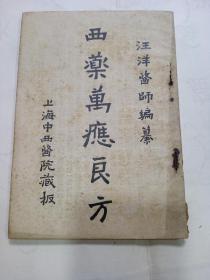 汪洋醫師編纂
西藥萬應良方
上海中西醫院藏板